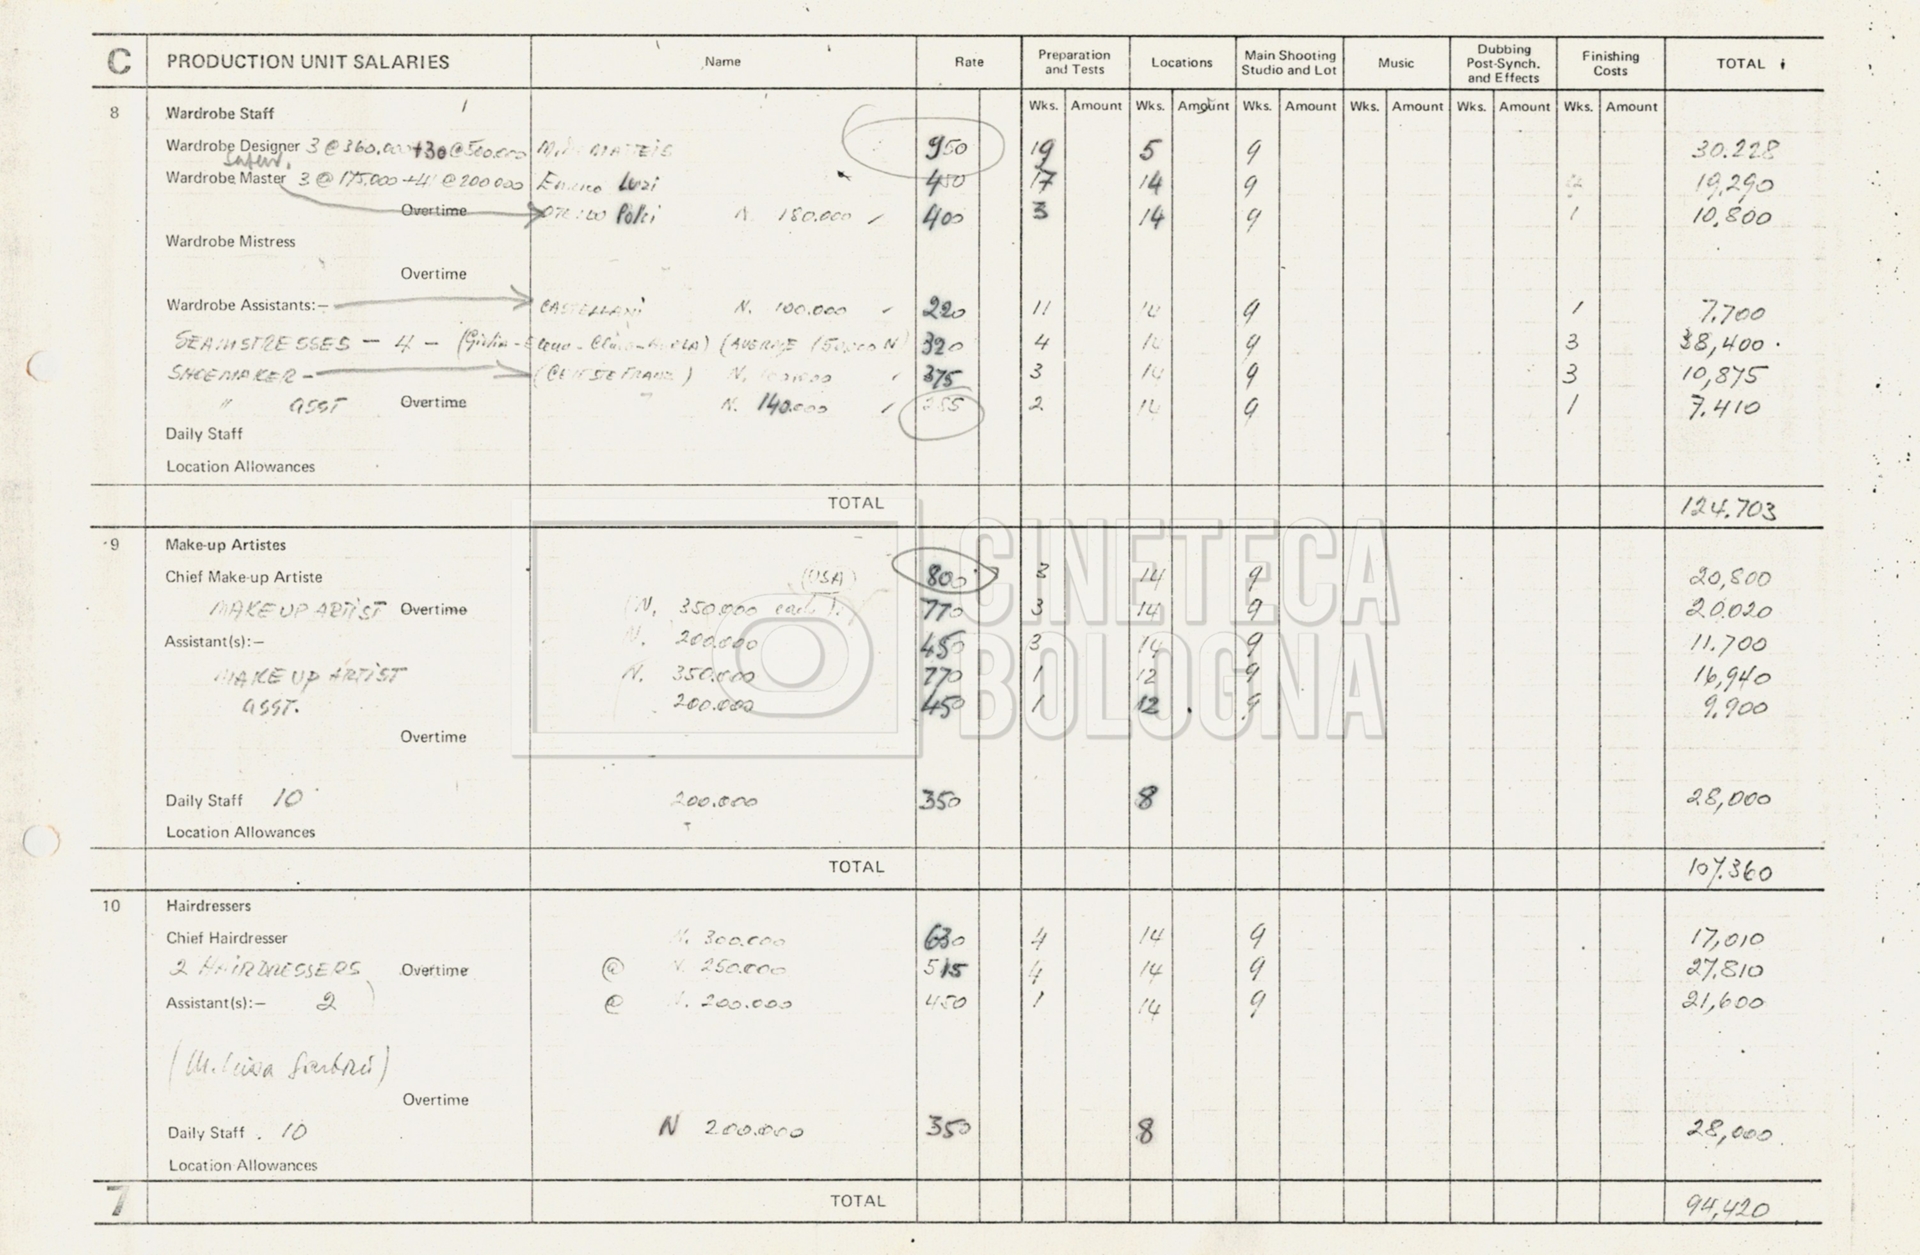 C PRODUCTION UNIT SALARIES Name Rate Preparation and Tests Locations Main Shooting Studio and Lot Music Dubbing Post-Synch. and Effects Finishing Costs TOTAL
Wks. Amount Wks. Amount Wks. Amount Wks. Amount Wks. Amount Wks. Amount
8 Wardrobe Staff
Wardrobe Designer 3 @ 360.000 +30 @ 500.000 950 19 5 9 30.228
Wardrobe Master 3 @ 175.000 +41 @ 200000 Luzi 450 17 14 9 19,290
Overtime Poli N. 180.000 400 3 14 9 1 10,800
Wardrobe Mistress
Overtime
Wardrobe Assistants:— CASTELLANI N. 100.000 220 11 14 9 1 7.700
SEAMSTRESSES — 4 — (AVERAGE 150.000 N) 320 4 14 9 3 38,400
SHOEMAKER — N. 375 3 14 9 3 10,875
" ASST Overtime N. 140.000 285 2 14 9 1 7.410
Daily Staff
Location Allowances
TOTAL 124.703
9 Make-up Artistes
Chief Make-up Artiste (USA) 800 3 14 9 20,800
MAKE UP ARTIST Overtime (N. 350.000 each) 770 3 14 9 20.020
Assistant(s):— N. 200.000 450 3 14 9 11.700
MAKE UP ARTIST N. 350.000 770 1 12 9 16,940
ASST. 200.000 450 1 12 9 9.900
Overtime
Daily Staff 10 200.000 350 8 28,000
Location Allowances
TOTAL 107.360
10 Hairdressers
Chief Hairdresser N. 300.000 630 4 14 9 17,010
2 HAIRDRESSERS Overtime @ N. 250.000 515 4 14 9 27.810
Assistant(s):— 2 @ N. 200.000 450 1 14 9 21,600
Overtime
Daily Staff . 10 N 200.000 350 8 28,000
Location Allowances
7 TOTAL 94,420
CINETECA
BOLOGNA